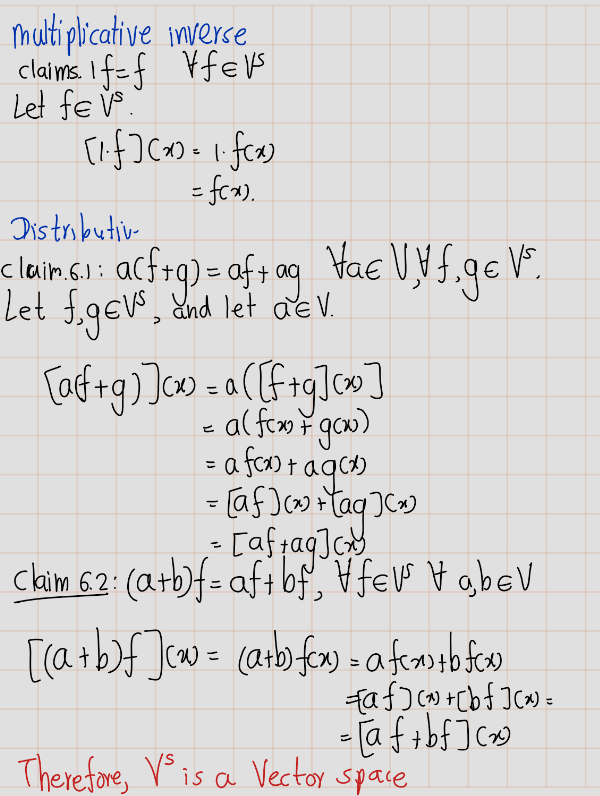 multiplicative inverse
claim5. 1f=f ∀f∈V^S
Let f∈V^S.
[1·f](x) = 1·f(x)
= f(x).
Distributiv-
claim.6.1: a(f+g) = af+ag ∀a∈V, ∀f,g∈V^S.
Let f,g∈V^S, and let a∈V.
[a(f+g)](x) = a([f+g](x)]
= a(f(x)+g(x))
= af(x)+ag(x)
= [af](x)+[ag](x)
= [af+ag](x)
Claim 6.2: (a+b)f = af+bf, ∀f∈V^S ∀ a,b∈V
[(a+b)f](x) = (a+b)f(x) = af(x)+bf(x)
=[af](x)+[bf](x) =
= [af+bf](x)
Therefore, V^S is a Vector space